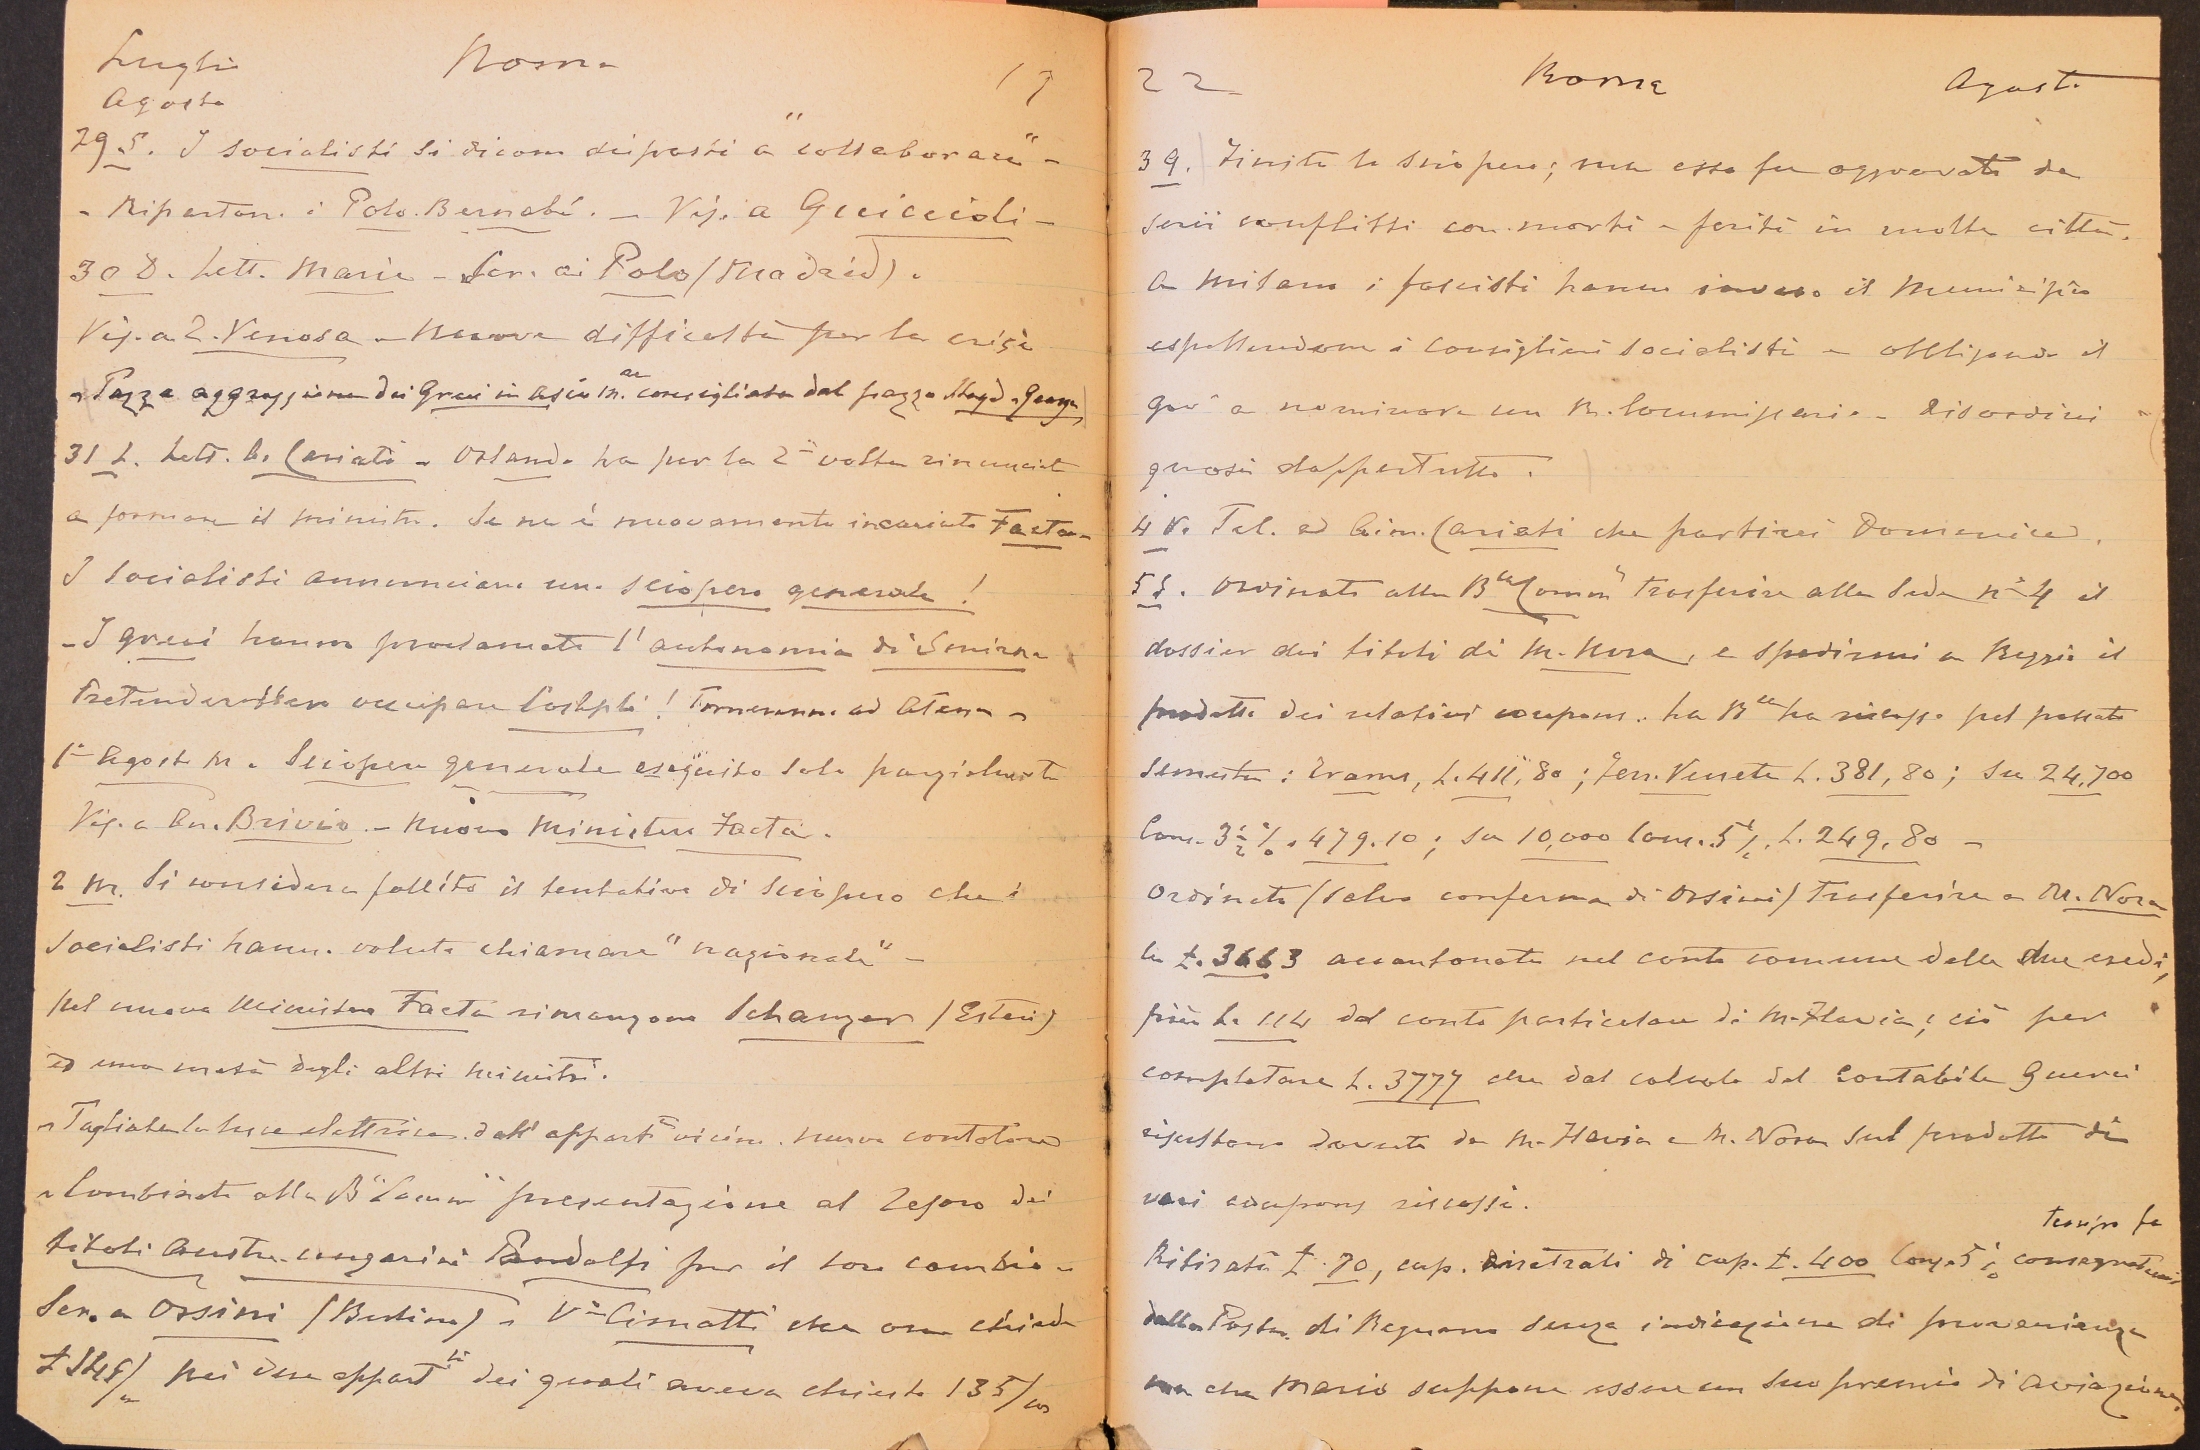 Luglio
Agosto
Roma
19
29 S. I socialisti si dicono disposti a "collaborare" -
- Ripartono i Polo. Bernabé. - Vis. a Guiccioli -
30 D. Lett. Maria - Scr. ai Polo (Madrid).
Vis. a Venosa - Nuove difficoltà per la crisi
- Pazza aggressione dei Greci in Asia M.re consigliata dal pazzo Lloyd-George
31 L. Lett. Cariati - Orlando ha per la 2a volta rinunciato
a formare il minist. Se ne è nuovamente incaricato Facta -
I socialisti annunciano uno sciopero generale!
- I greci hanno proclamato l'autonomia di Smirne
Pretenderebbero occupare Costpli! Torneranno ad Atene -
1° Agosto M. Sciopero generale eseguito solo parzialmente
Vis. a Brivio. - Nuovo Ministero Facta.
2 M. Si considera fallito il tentativo di sciopero che i
socialisti hanno voluto chiamare "nazionale" -
Nel nuovo Ministero Facta rimangono Schanzer (Esteri)
ed una metà degli altri ministri.
- Tagliata la luce elettrica dall'appart° vicino. nuovo contatore
- Combinato alla Bca Comm presentazione al Tesoro dei
titoli Austro-ungarici Pandolfi per il loro cambio -
Scr. a Orsini (Berlino) - Va Cimatti che ora chiede
£ 145/m pei due appartti dei quali aveva chiesto 135/m
22
Roma
Agosto
3 G. Finito lo sciopero; ma esso fu aggravato da
serii conflitti con morti e feriti in molte città.
A Milano i fascisti hanno invaso il Municipio
espellendone i consiglieri socialisti e obbligando il
Govo a nominare un R. Commissario - Disordini
quasi dappertutto.
4 V. Tel. ad Cariati che partirei Domenica.
5 S. Ordinato alla Bca Comm trasferire alla Sede n° 4 il
dossier dei titoli di M. Nora, e spedirmi a Reggio il
prodotto dei relativi coupons. La Bca ha riscosso pel passato
semestre: Trams, L. 411,80; Ferr. Venete L. 381,80; su 24,700
Cons. 3 1/2 % . 479.10; su 10,000 Cons. 5%, L. 249,80 -
Ordinato (salvo conferma di Orsini) trasferire a M. Nora
le £. 3663 accantonate nel conto comune delle due eredi,
più L. 114 dal conto particolare di M. Flavia; ciò per
completare L. 3777 che dal calcolo del Contabile Guerci
risultano dovute da M. Flavia a M. Nora sul prodotto di
vari coupons riscossi.
Ritirati £. 70, cup. arretrati di cap. £. 400 Cons. 5% consegnatimi tempo fa
dalla Posta di Regnano senza indicazione di provenienza
ma che Mario suppone essere un suo premio di aviazione.